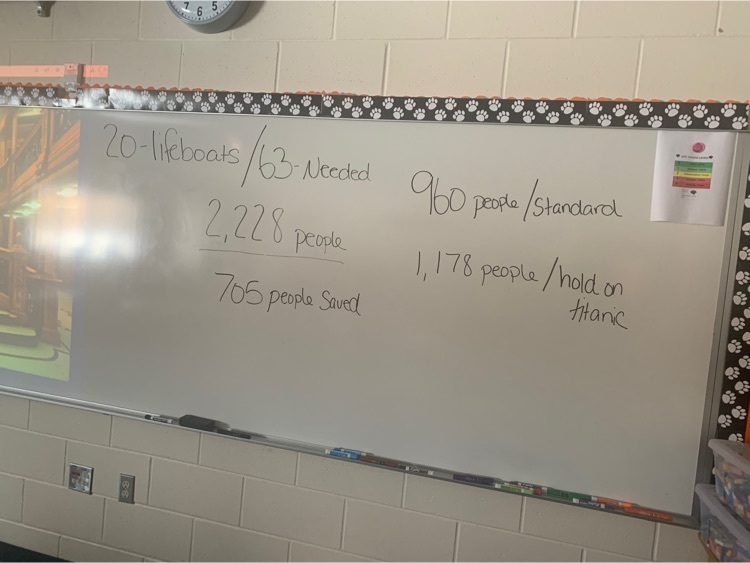 7 6 5
20-lifeboats/63-Needed
2,228 people
705 people Saved
960 people/standard
1,178 people/hold on
titanic